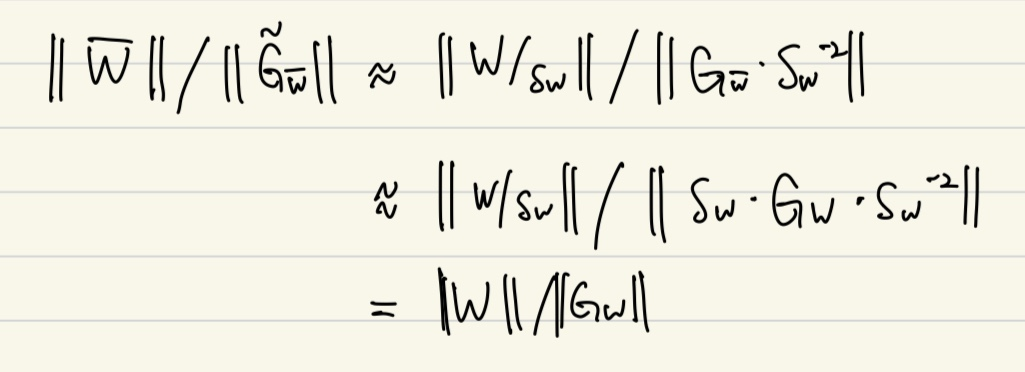 ‖W̅‖/‖G̃_W̅‖ ≈ ‖W/s_w‖/‖G_w̅ · S_w⁻²‖
≈ ‖W/s_w‖/‖S_w · G_w · S_w⁻²‖
= ‖W‖/‖G_w‖